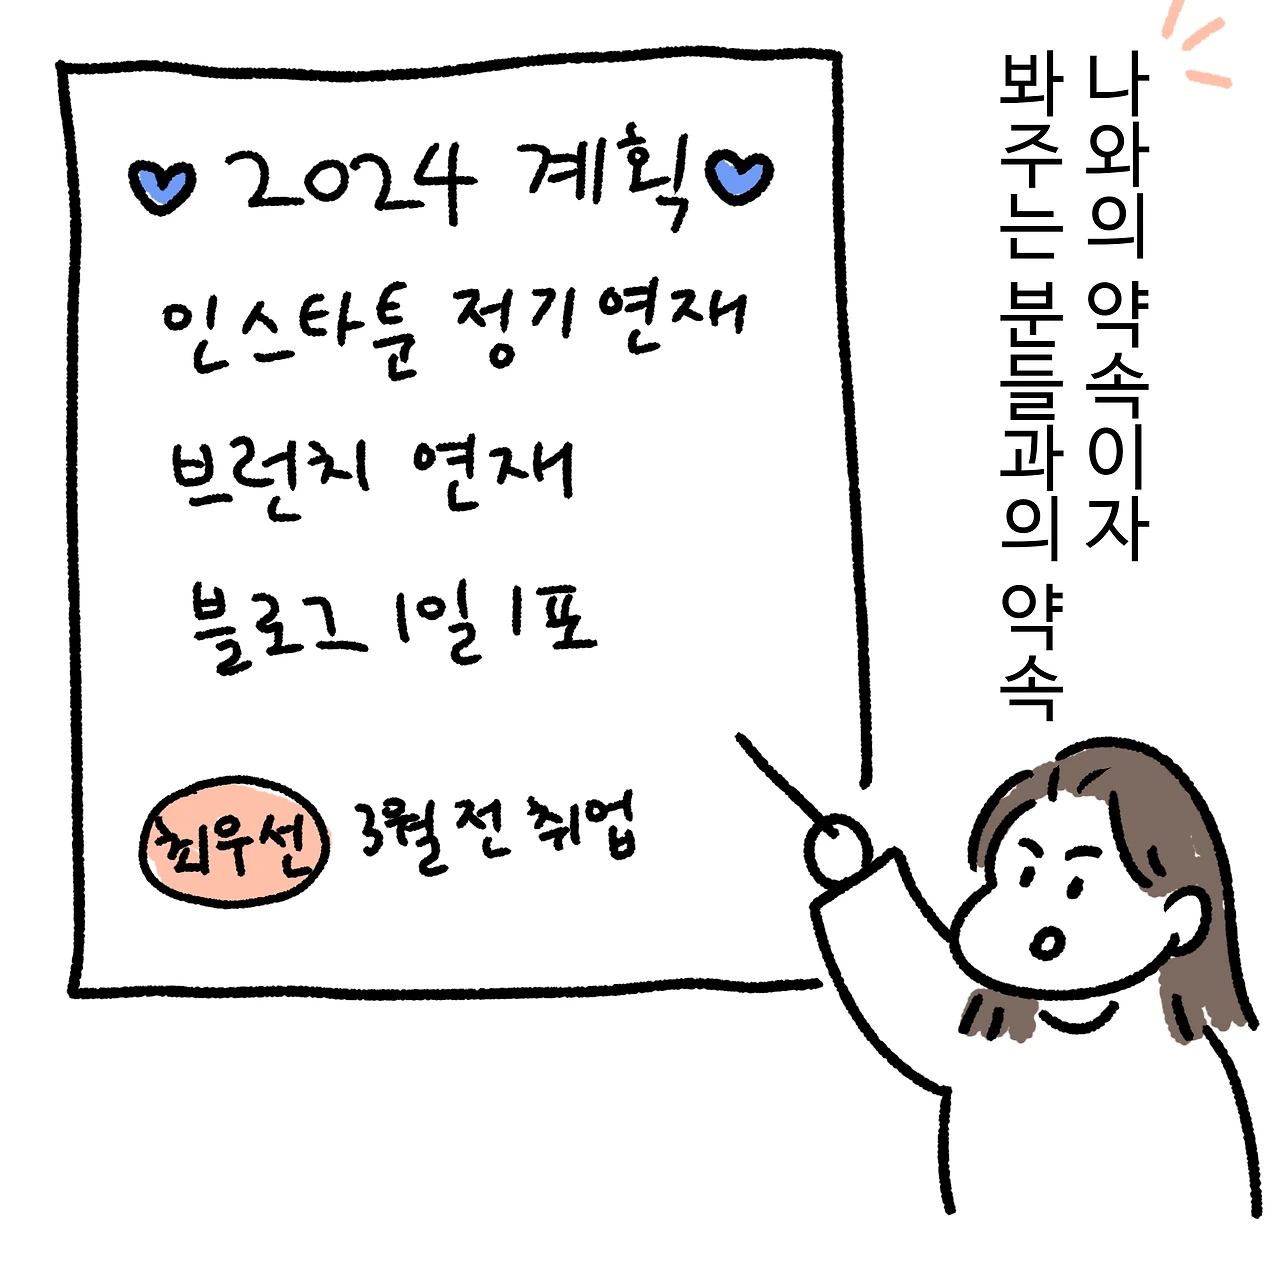 2024 계획
인스타툰 정기연재
브런치 연재
블로그 1일 1포
최우선 3월 전 취업
나와의 약속이자
봐주는 분들과의 약속